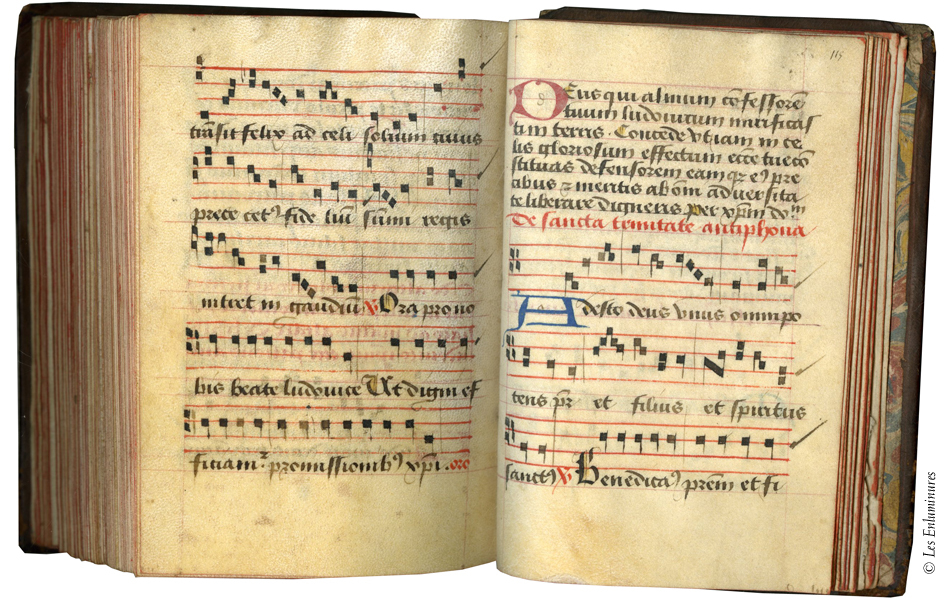 transit felix ad celi solium cuius
prece cet⁹ fide liũ sũmi regis
intret in gaudiũ ℣ Ora pro no
bis beate ludovice Ut digni ef
ficiam² promissionib⁹ xp̃i . oro
115
Deus qui almum cõfessorẽ
tuum ludovicum mirificas
ti in terris . Concede vt iam in ce
lis gloriosum effectum ecce tue cõ
stituas defensorem eam qz ei⁹ pre
cibus z meritis ab om̃ adversita
te liberare digneris per xp̃m do^m
De sancta trinitate antiphona
Adesto deus vnus omnipo
tens pr̃ et filius et spiritus
sanct⁹ ℣ Benedica⁹ prẽm et fi
© Les Enluminures